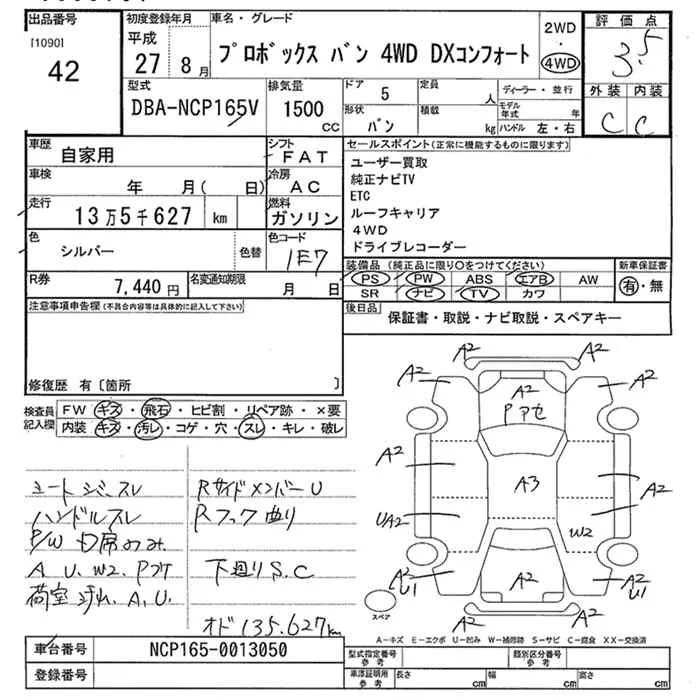 出品番号
[1090]
42
初度登録年月
平成
27 8月
車名・グレード
プロボックス バン 4WD DXコンフォート
2WD
・
4WD
評価点
3.5
外装 内装
C C
型式
DBA-NCP165V
排気量
1500
CC
ドア 5
定員 人
ディーラー・並行
形状
バン
積載 kg
モデル年式 年
ハンドル 左・右
車歴
自家用
シフト
FAT
車検
年 月( 日)
冷房
AC
走行
13万5千627 km
燃料
ガソリン
色
シルバー
色替
色コード
1E7
R券
7,440円
名変通知期限
月 日
セールスポイント(正常に機能するものに限ります)
ユーザー買取
純正ナビTV
ETC
ルーフキャリア
4WD
ドライブレコーダー
装備品(純正品に限り○をつけてください)
PS PW ABS エアB AW
SR ナビ TV カワ
新車保証書
有・無
後日品
保証書・取説・ナビ取説・スペアキー
注意事項申告欄(不具合内容等は具体的に記入して下さい)
修復歴 有〔箇所 〕
検査員記入欄
FW キズ・飛石・ヒビ割・リペア跡・×要
内装 キズ・汚レ・コゲ・穴・スレ・キレ・破レ
シートシミ、スレ
ハンドルスレ
P/W 日席のみ
A U. W2. Pアセ
荷室汚れ、A、U.
Rサイドメンバー U
Rフック曲り
下廻りS.C
オド135.627km
A2 A2
A2 A2
A2
Pアセ
A2
A3
A2
UA2
W2
A2
U1
A2
A2
U1
A2 A2
スペア
A-キズ E-エクボ U-凹み W-補修跡 S-サビ C-腐食 XX-交換済
車台番号
NCP165-0013050
登録番号
型式指定番号
参考
類別区分番号
参考
車澤証明用
参考
長さ cm
幅 cm
高さ cm